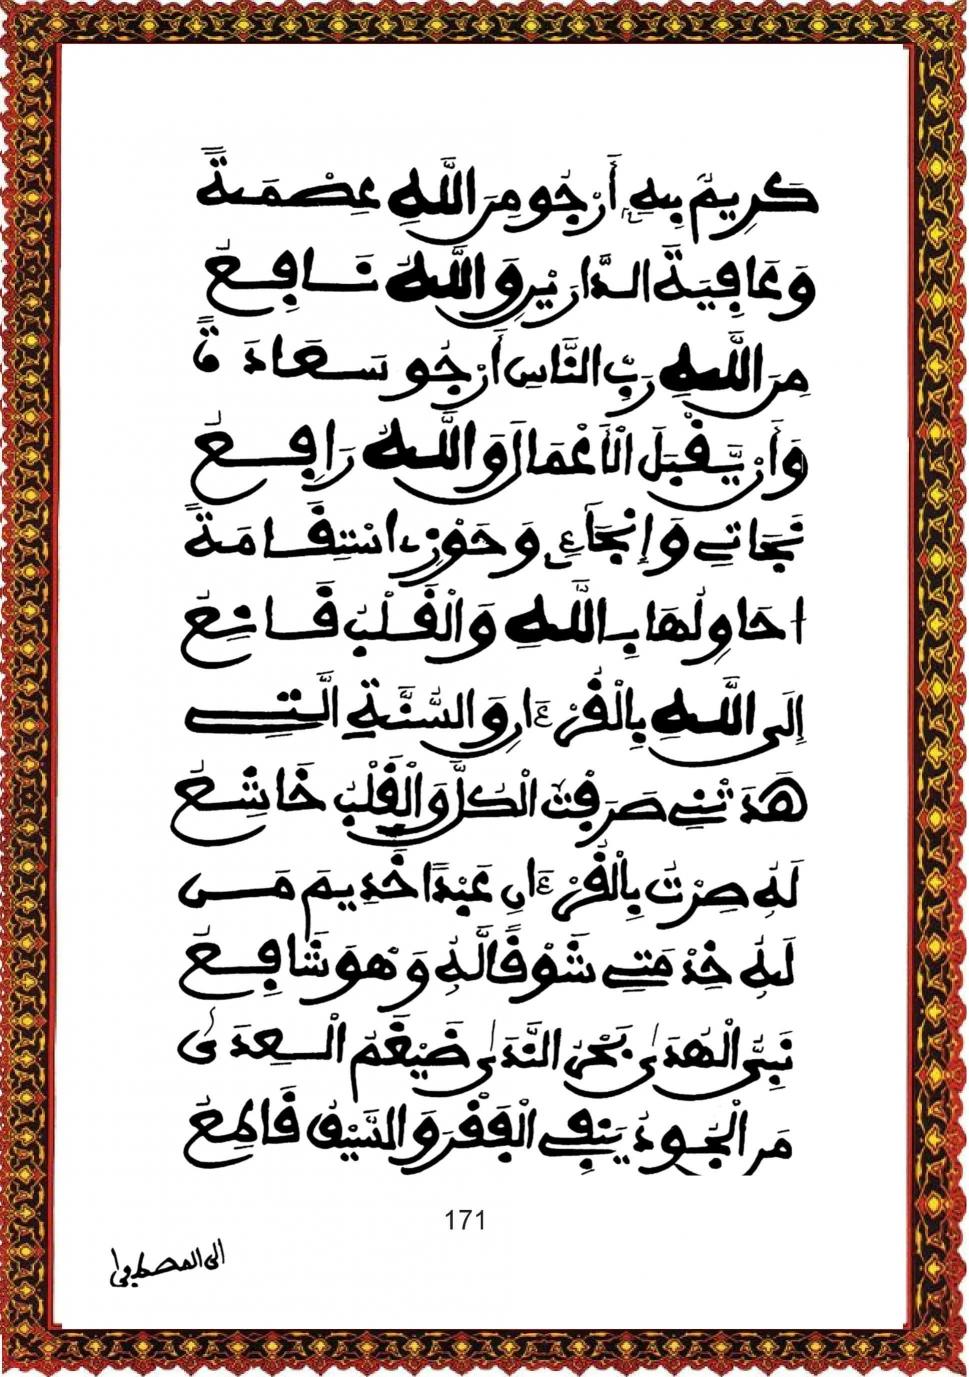 كَرِيمٌ بِهِ أَرْجُو مِنَ اللَّهِ عِصْمَةً
وَعَافِيَةَ الدَّارَيْنِ وَاللَّهُ نَافِعُ
مِنَ اللَّهِ رَبِّ النَّاسِ أَرْجُو سَعَادَةً
وَأَنْ يَّقْبَلَ الْأَعْمَالَ وَاللَّهُ رَافِعُ
نَجَاتِي وَإِنجَاءِ وَحَوْزِي اسْتِقَامَةً
احَاوِلُهَا بِاللَّهِ وَالْقَلْبُ قَانِعُ
إِلَى اللَّهِ بِالْقُرْءَانِ وَالسُّنَّةِ الَّتِي
هَدَتْنِي صَرَفْتُ الْكُلَّ وَالْقَلْبُ خَاشِعُ
لَهُ صِرْتُ بِالْقُرْءَانِ عَبْدًا خَدِيمَ مَن
لَهُ خِدْمَتِي شَوْقًا لَهُ وَهْوَ شَافِعُ
نَبِيُّ الْهُدَى بَحْرُ النَّدَى ضَيْغَمُ الْعِدَى
مَنِ الْجُودُ يَنفِي الْفَقْرَ وَالسَّيْفُ قَامِعُ
171
الى المصطفى